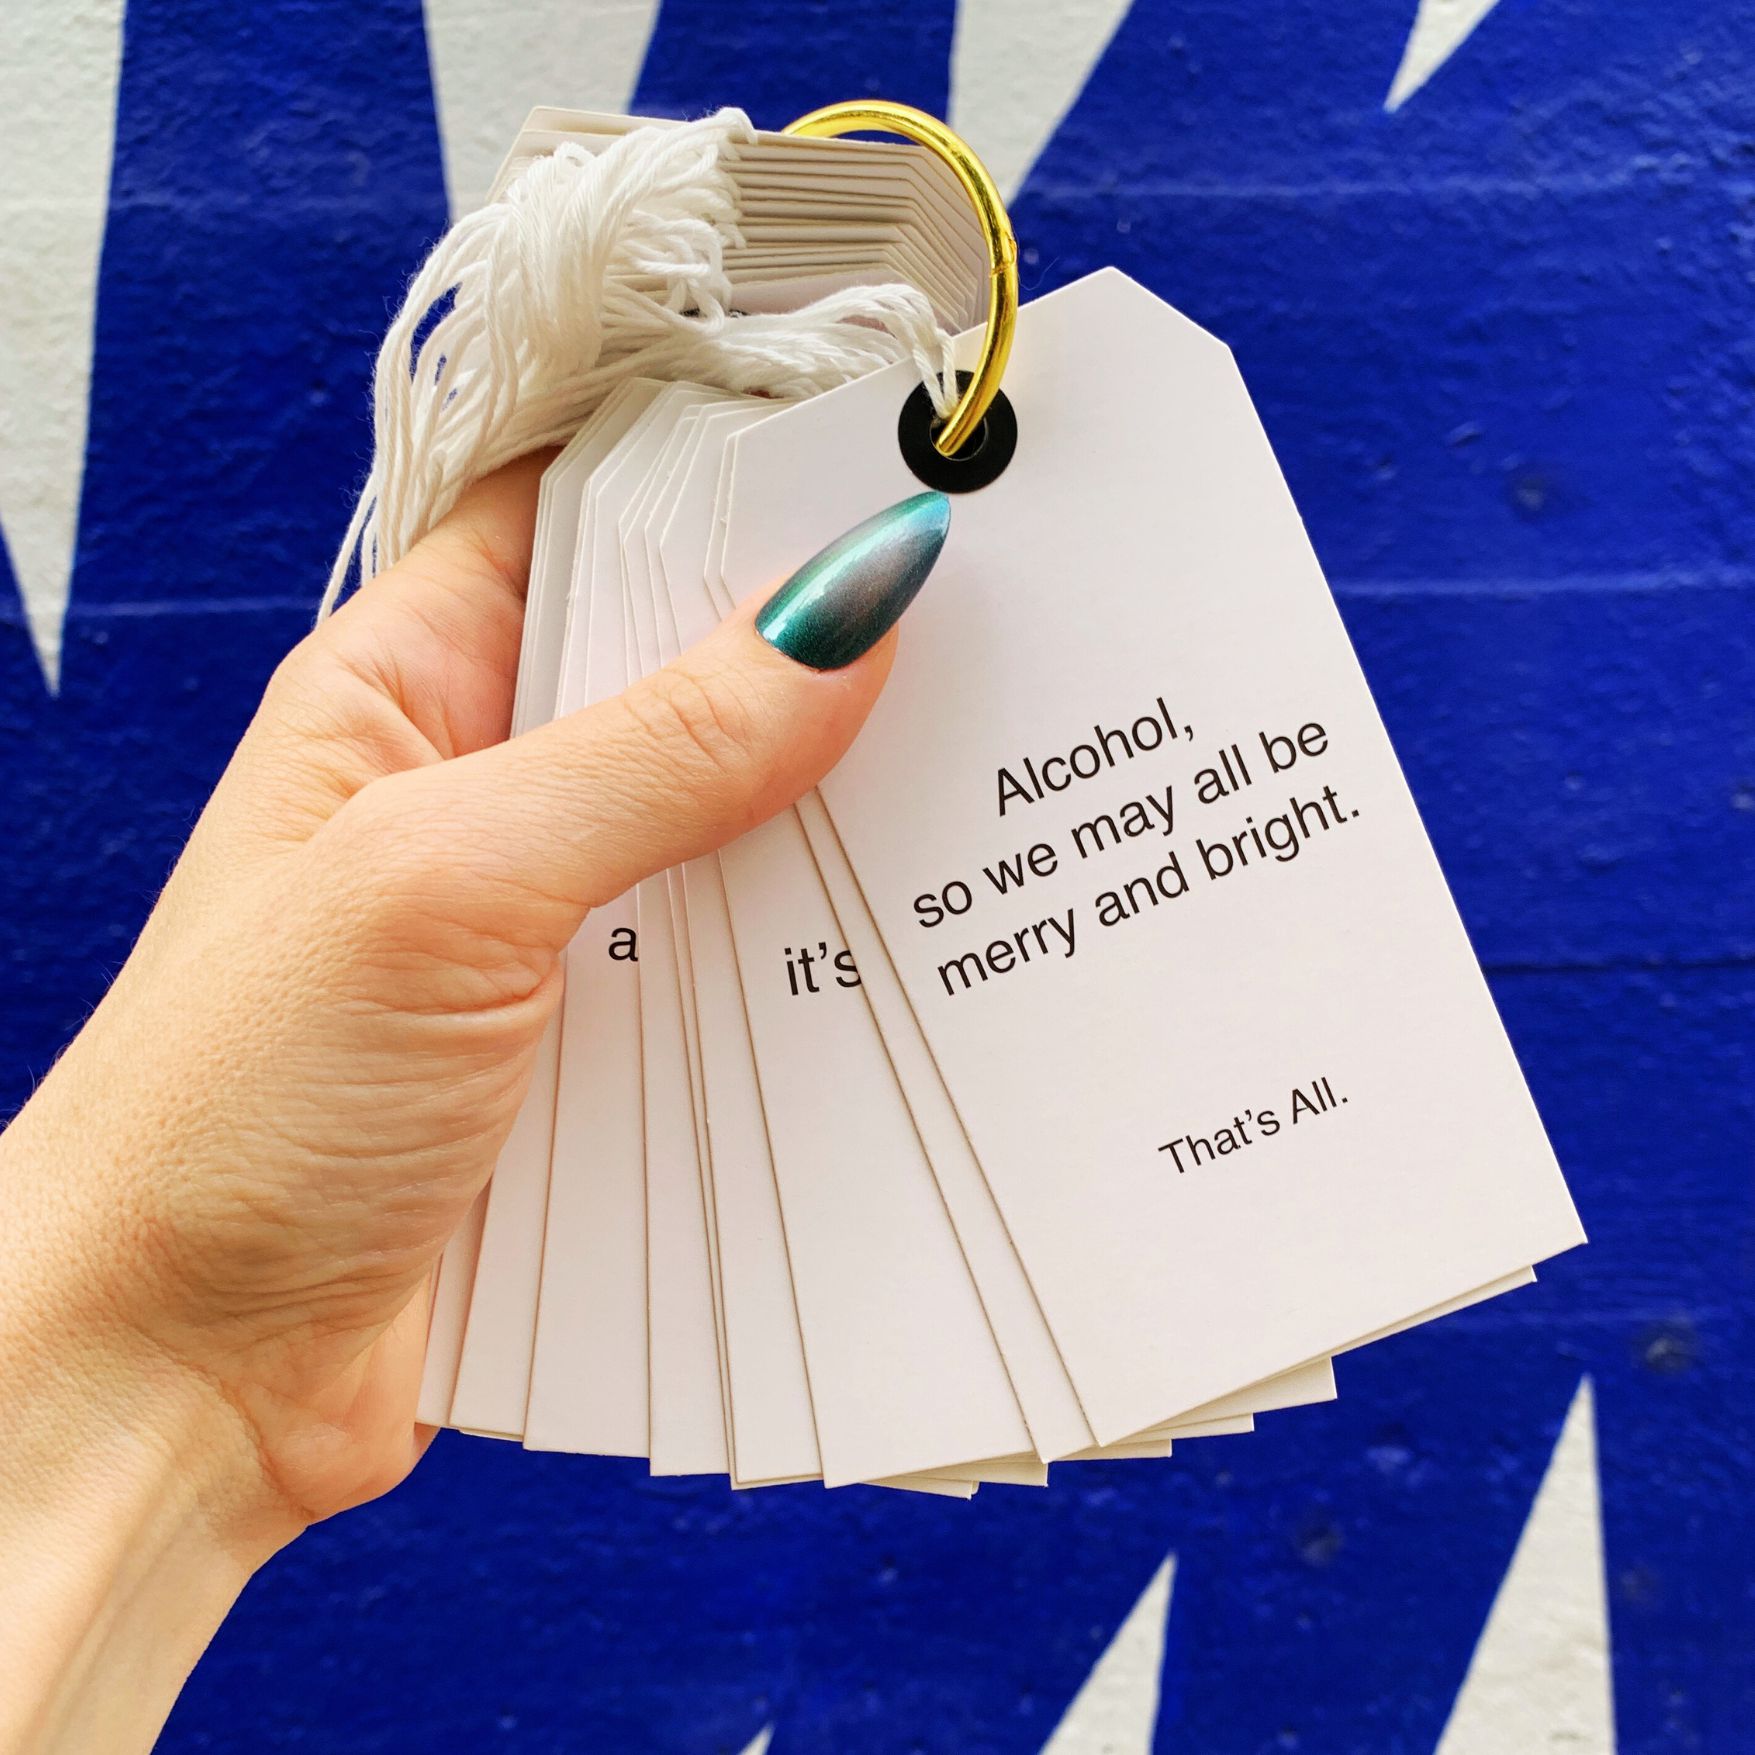 Alcohol,
so we may all be
merry and bright.
That's All.
it's
a